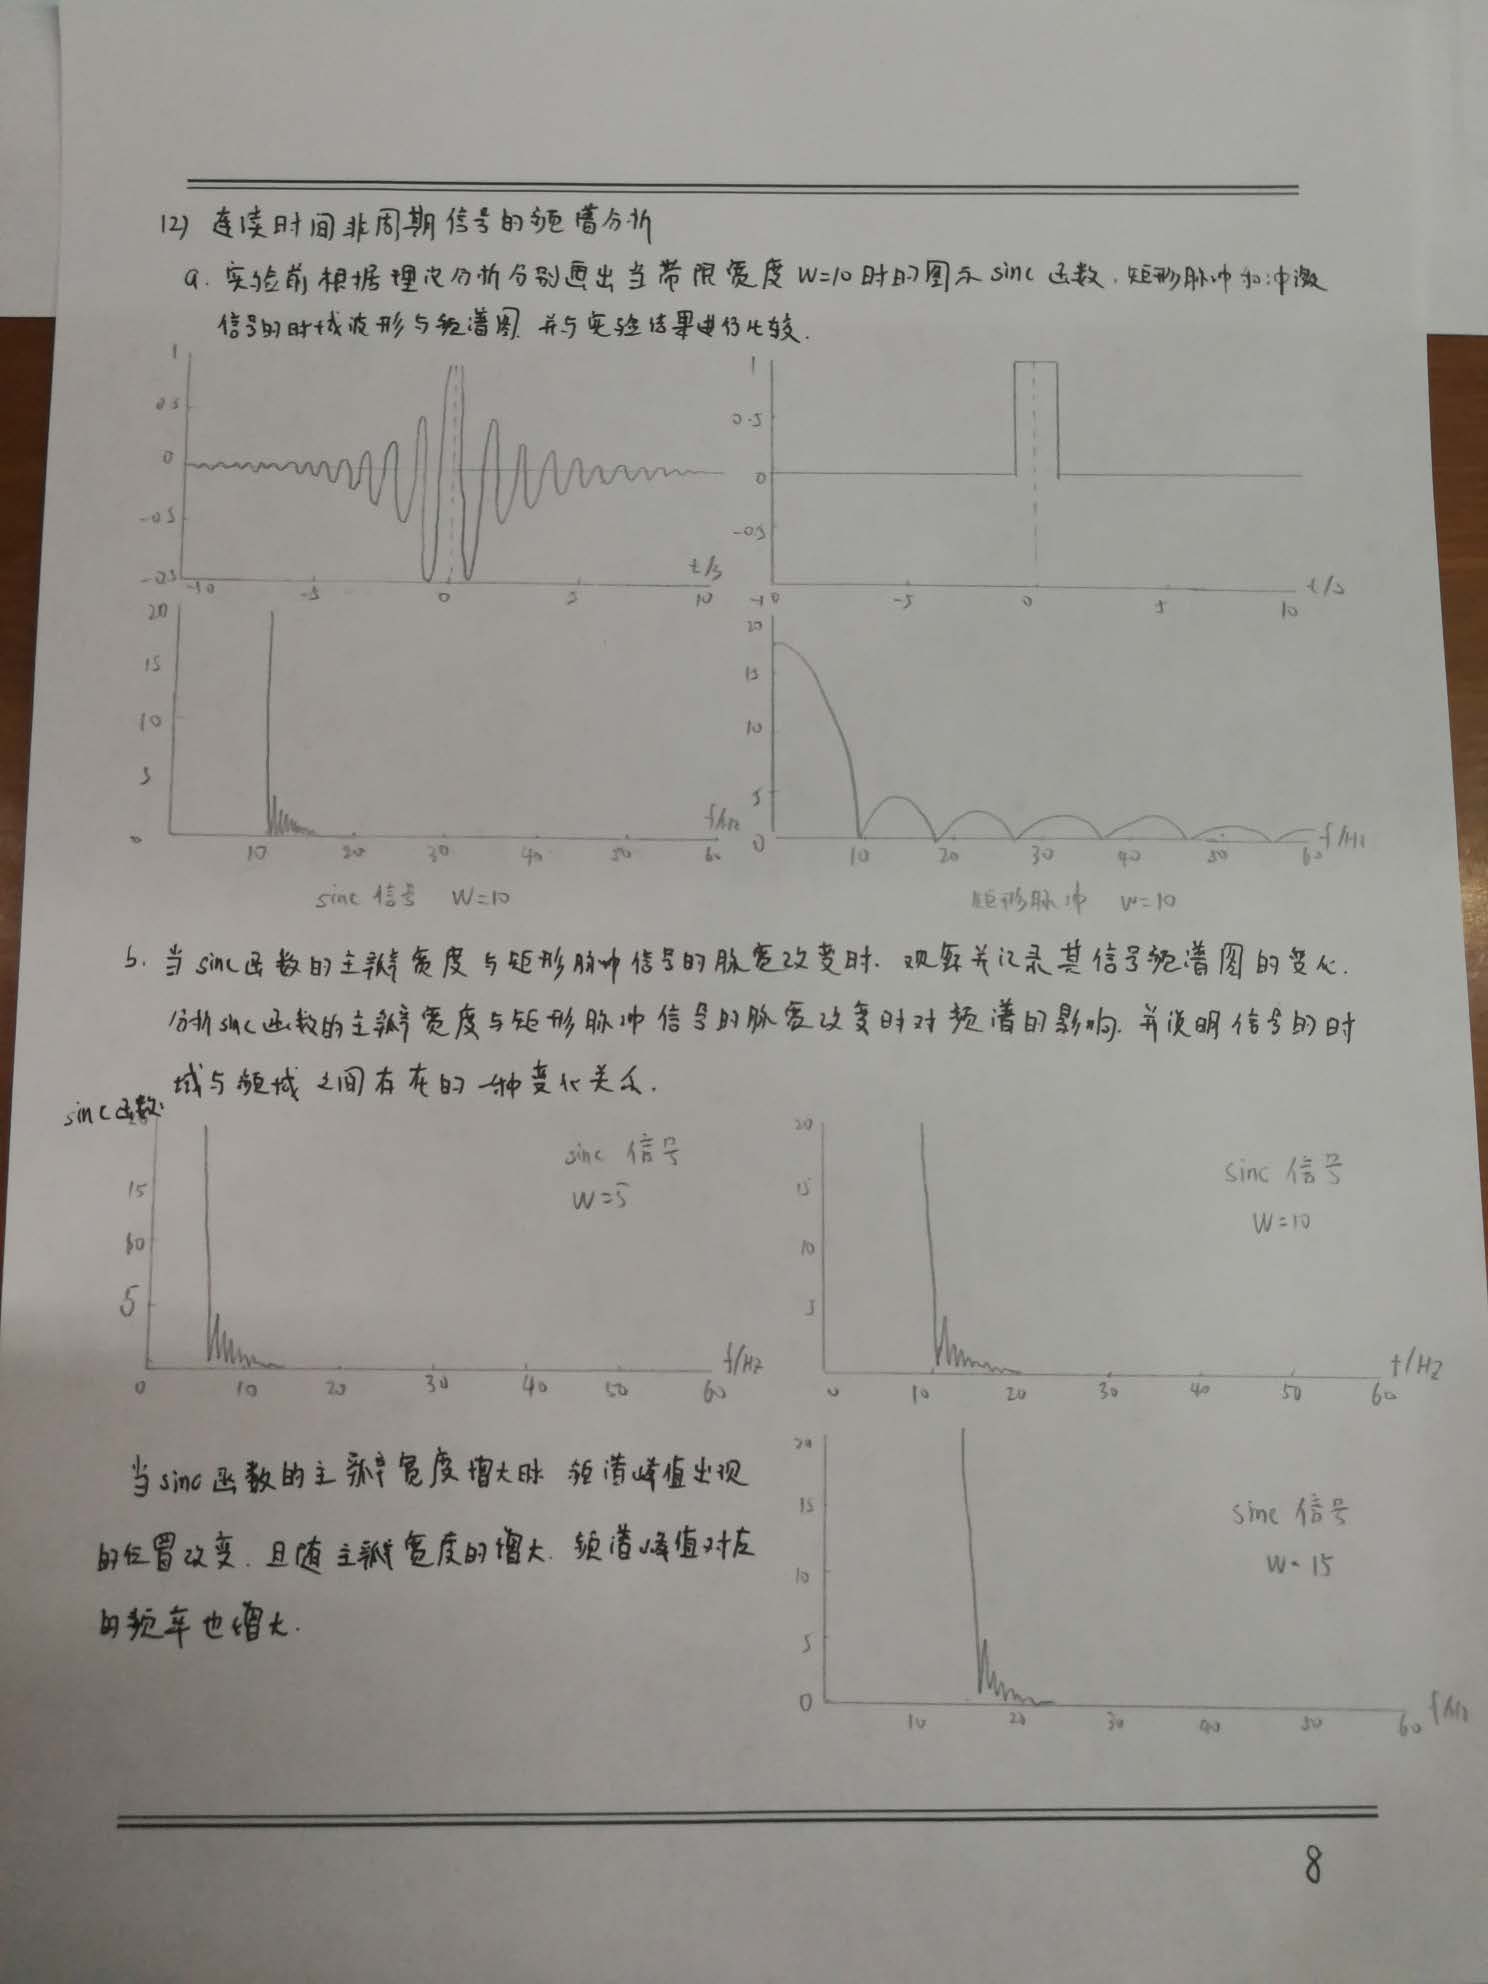 12) 连续时间非周期信号的频谱分析
a. 实验前根据理论分析分别画出当带限宽度 W=10 时的图示 sinc 函数, 矩形脉冲和冲激
信号的时域波形与频谱图. 并与实验结果进行比较.
1
0.5
0
-0.5
-0.5
-10 -5 0 5 10
t/s
1
0.5
0
-0.5
-10 -5 0 5 10
t/s
20
15
10
5
0
10 20 30 40 50 60
f/Hz
sinc 信号 W=10
20
15
10
5
0
10 20 30 40 50 60
f/Hz
矩形脉冲 W=10
b. 当 sinc 函数的主瓣宽度与矩形脉冲信号的脉宽改变时. 观察并记录其信号频谱图的变化.
分析 sinc 函数的主瓣宽度与矩形脉冲信号的脉宽改变时对频谱的影响. 并说明信号的时
域与频域之间存在的一种变化关系.
sinc函数:
15
10
5
0 10 20 30 40 50 60
f/Hz
sinc 信号
W=5
20
15
10
5
0 10 20 30 40 50 60
f/Hz
sinc 信号
W=10
当 sinc 函数的主瓣宽度增大时 频谱峰值出现
的位置改变. 且随主瓣宽度的增大. 频谱峰值对应
的频率也增大.
20
15
10
5
0
10 20 30 40 50 60
f/Hz
sinc 信号
W=15
8